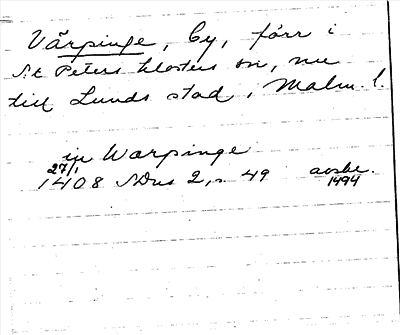 Värpinge, by, förr i
S:t Peters klosters sn, nu
till Lunds stad, Malm. l.
in Warpinge
27/1 1408 SDns 2, s. 49 avskr. 1494